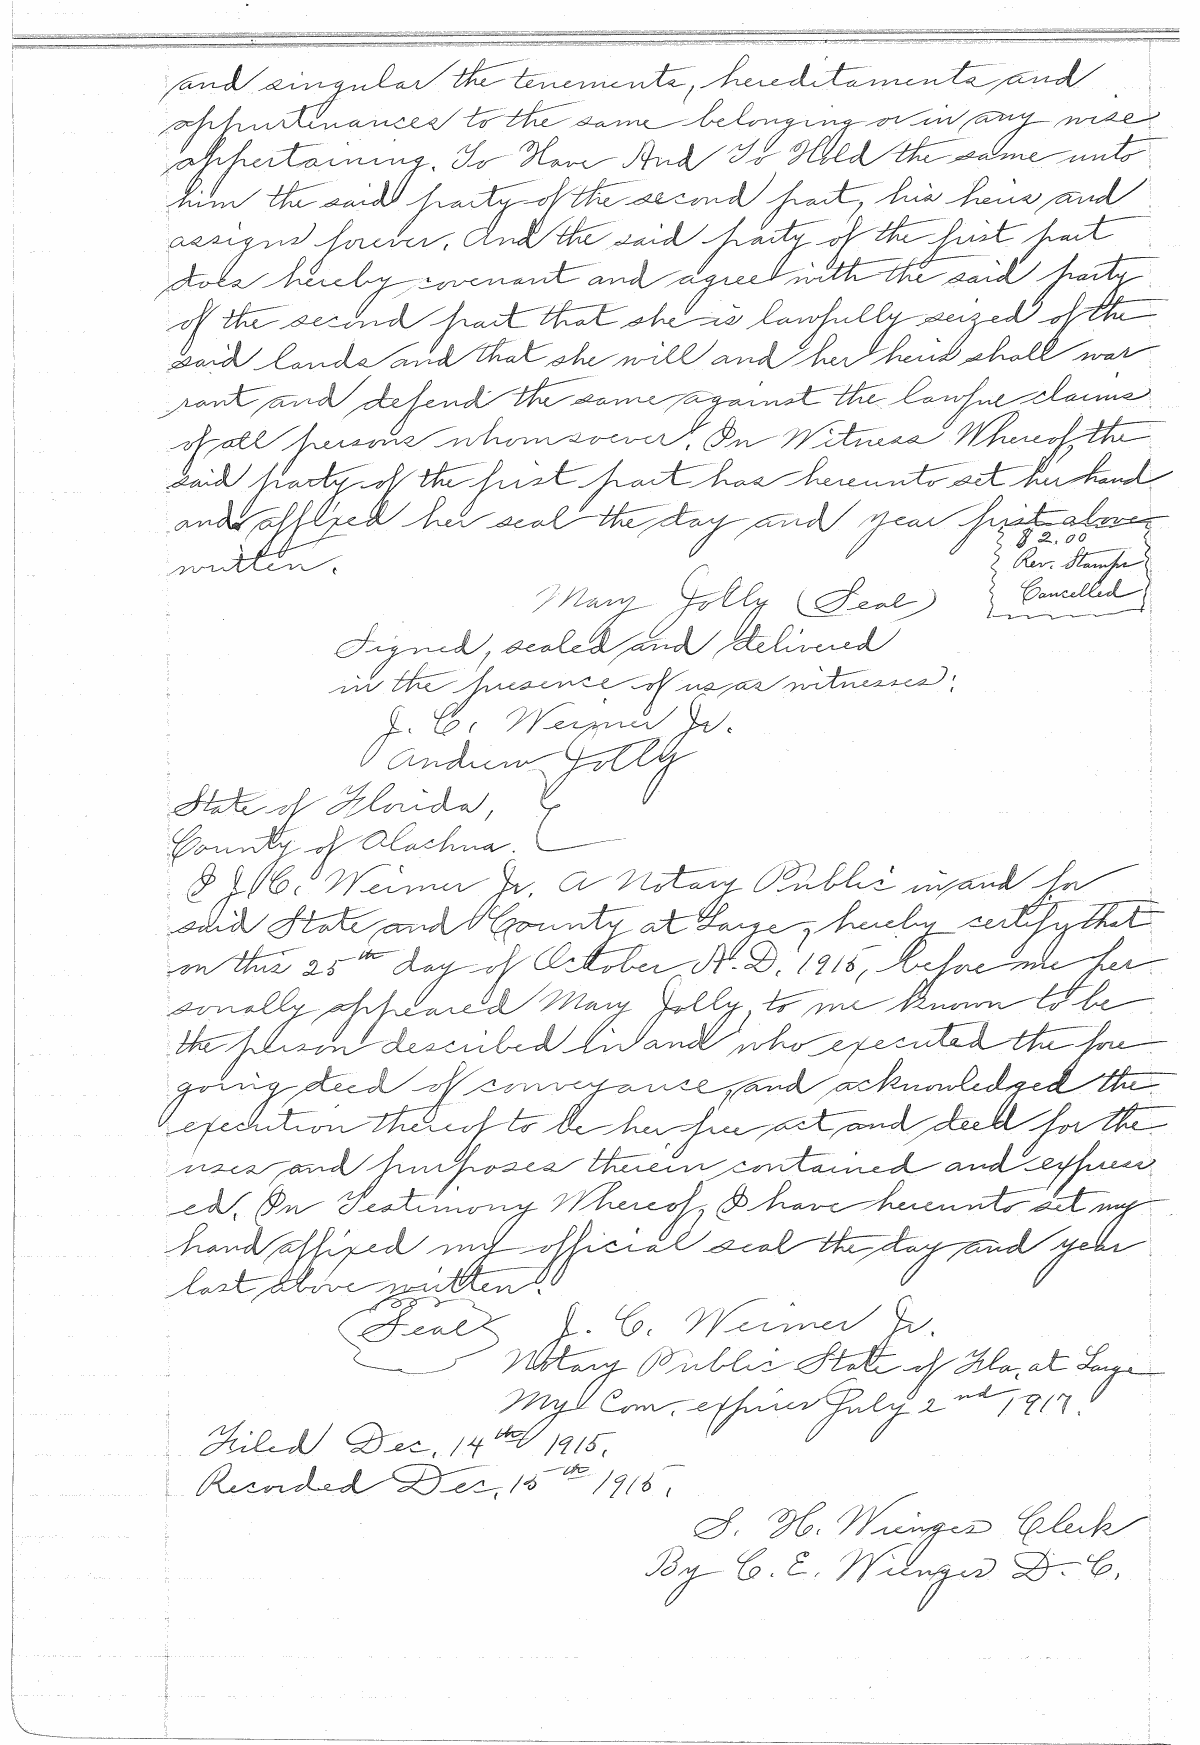 and singular the tenements, hereditaments and
appurtinances to the same belonging or in any wise
appertaining. To Have And To Hold the same unto
him the said party of the second part, his heirs and
assigns forever. And the said party of the first part
does hereby covenant and agree with the said party
of the second part that she is lawfully seized of the
said lands and that she will and her heirs shall war
rant and defend the same against the lawful claims
of all persons whomsoever. In Witness Whereof, the
said party of the first part has hereunto set her hand
and affixed her seal the day and year first above
written.
$2.00
Rev. Stamps
Cancelled
Mary Jolly (Seal)
Signed, sealed and delivered
in the presence of us as witnesses:
J. C. Weimer Jr.
Andrew Jolly
State of Florida,
County of Alachua.
I J. C. Weimer Jr. A Notary Public in and for
said State and County at Large, hereby certify that
on this 25th day of October A. D. 1915, before me per
sonally appeared Mary Jolly, to me known to be
the person described in and who executed the fore
going deed of conveyance, and acknowledged the
execution thereof to be her free act and deed for the
uses and purposes therein contained and express
ed. In Testimony Whereof, I have hereunto set my
hand affixed my official seal the day and year
last above written.
Seal J. C. Weimer Jr.
Notary Public State of Fla, at Large
My Com. expires July 2nd, 1917.
Filed Dec. 14th 1915.
Recorded Dec, 15th 1915.
S. H. Wienges Clerk
By C. E. Wienges D. C.